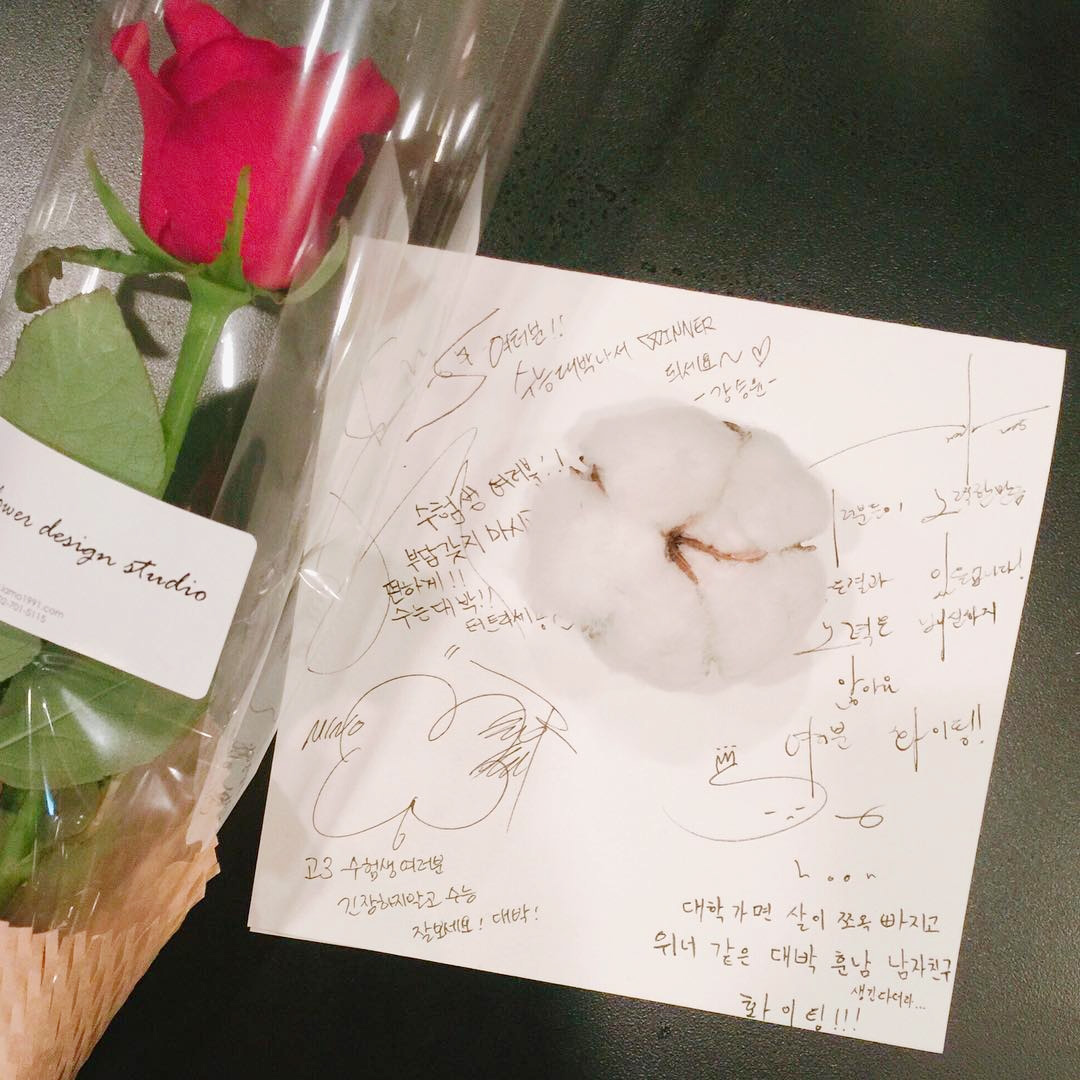 여러분!!
수능대박나서 WINNER
되세요~ ♡
-강승윤-
수험생 여러분!!
부담갖지 마시고
편하게!!
수능대박!!
터트리세농
여러분들이 노력한만큼
결과 있을겁니다!
노력은 배신하지
않아요
여러분 화이팅!!
mino
고3 수험생여러분
긴장하지말고 수능
잘보세요! 대박!
hoon
대학가면 살이 쪼옥 빠지고
위너 같은 대박 훈남 남자친구
생긴다더라...
화이팅!!!
ower design studio
1991.com
701-5115